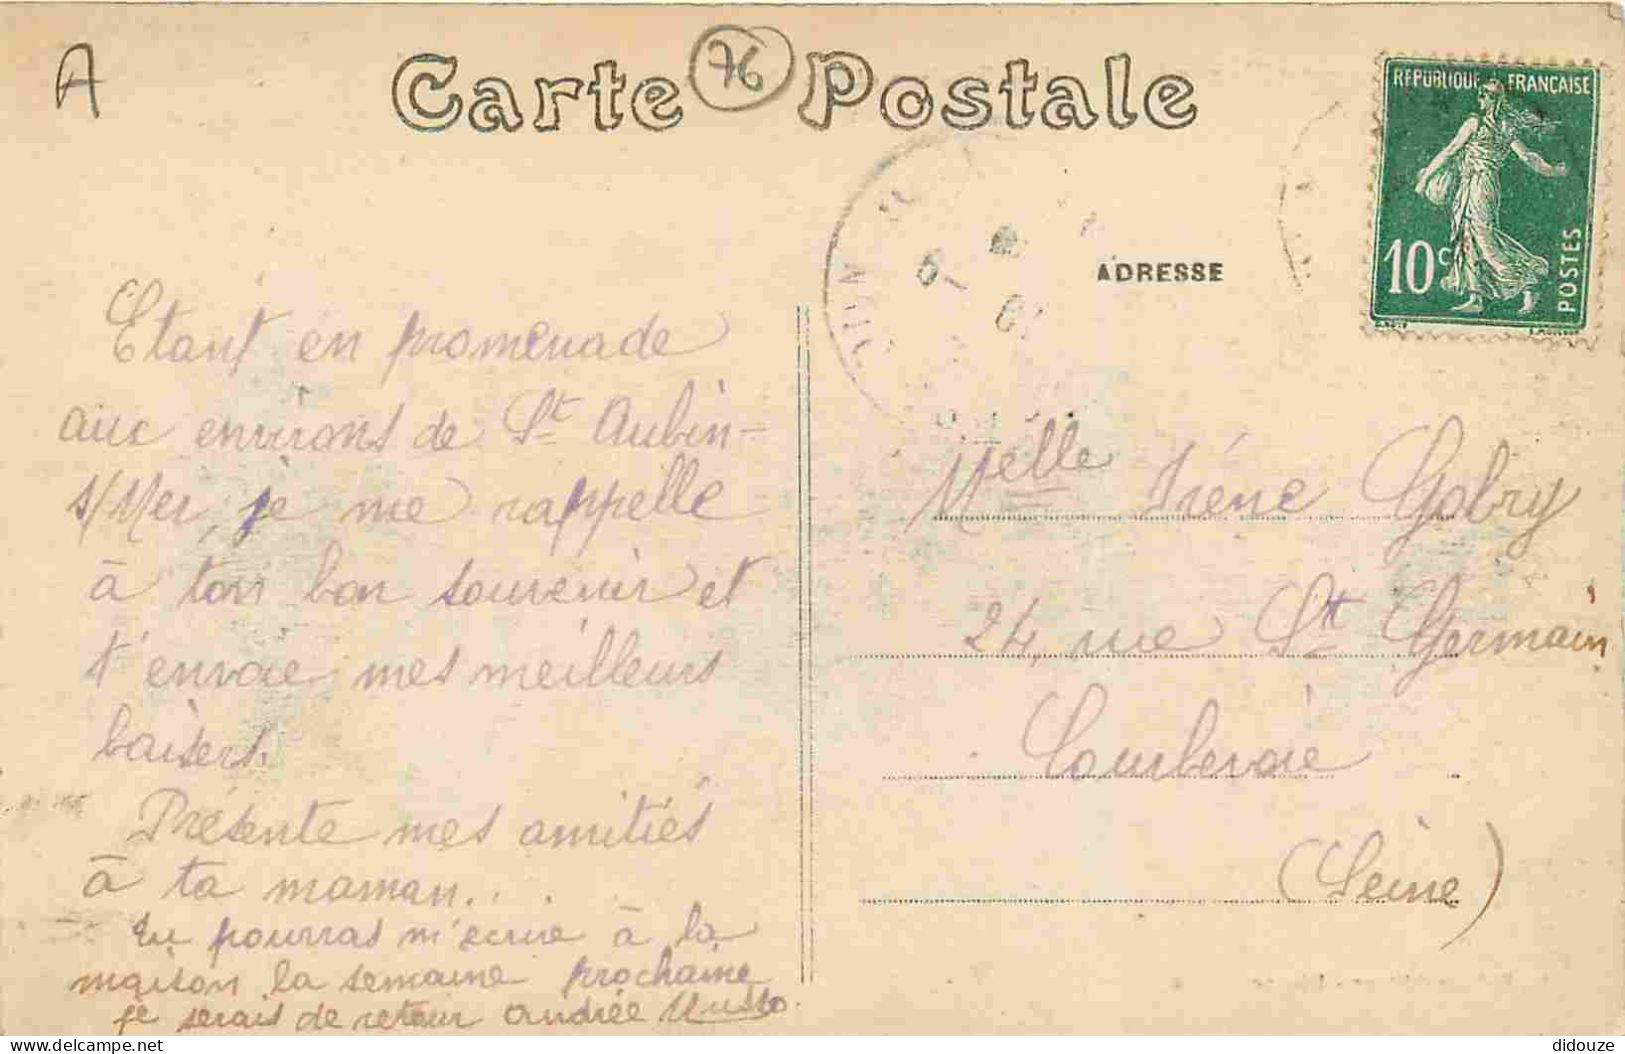 A
Carte Postale
76
RÉPUBLIQUE FRANÇAISE
10c
POSTES
ADRESSE
Etant en promenade
aux environs de St Aubin-
s/Mer, je me rappelle
à ton bon souvenir et
t'envoie mes meilleurs
baisers.
Présente mes amitiés
à ta maman...
Tu pourras m'écrire à la
maison la semaine prochaine
je serais de retour Andrée
Melle Irène Gobry
24, rue St Germain
Courbevoie
(Seine)
didouze